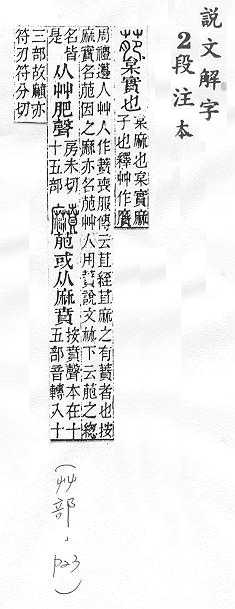 說文解字
2段注本
萉枲實也枲麻也枲實麻
子也釋艸作黂
周禮籩人艸人作蕡喪服傳云苴絰苴麻之有蕡者也按
麻實名萉因之麻亦名萉艸人用蕡說文𣏟下云萉之緫
名皆
是从艸肥聲房未切
十五部黂萉或从麻賁按賁聲本在十
五部音轉入十
三部故黂亦
符刃符分切
(艸部,p23)